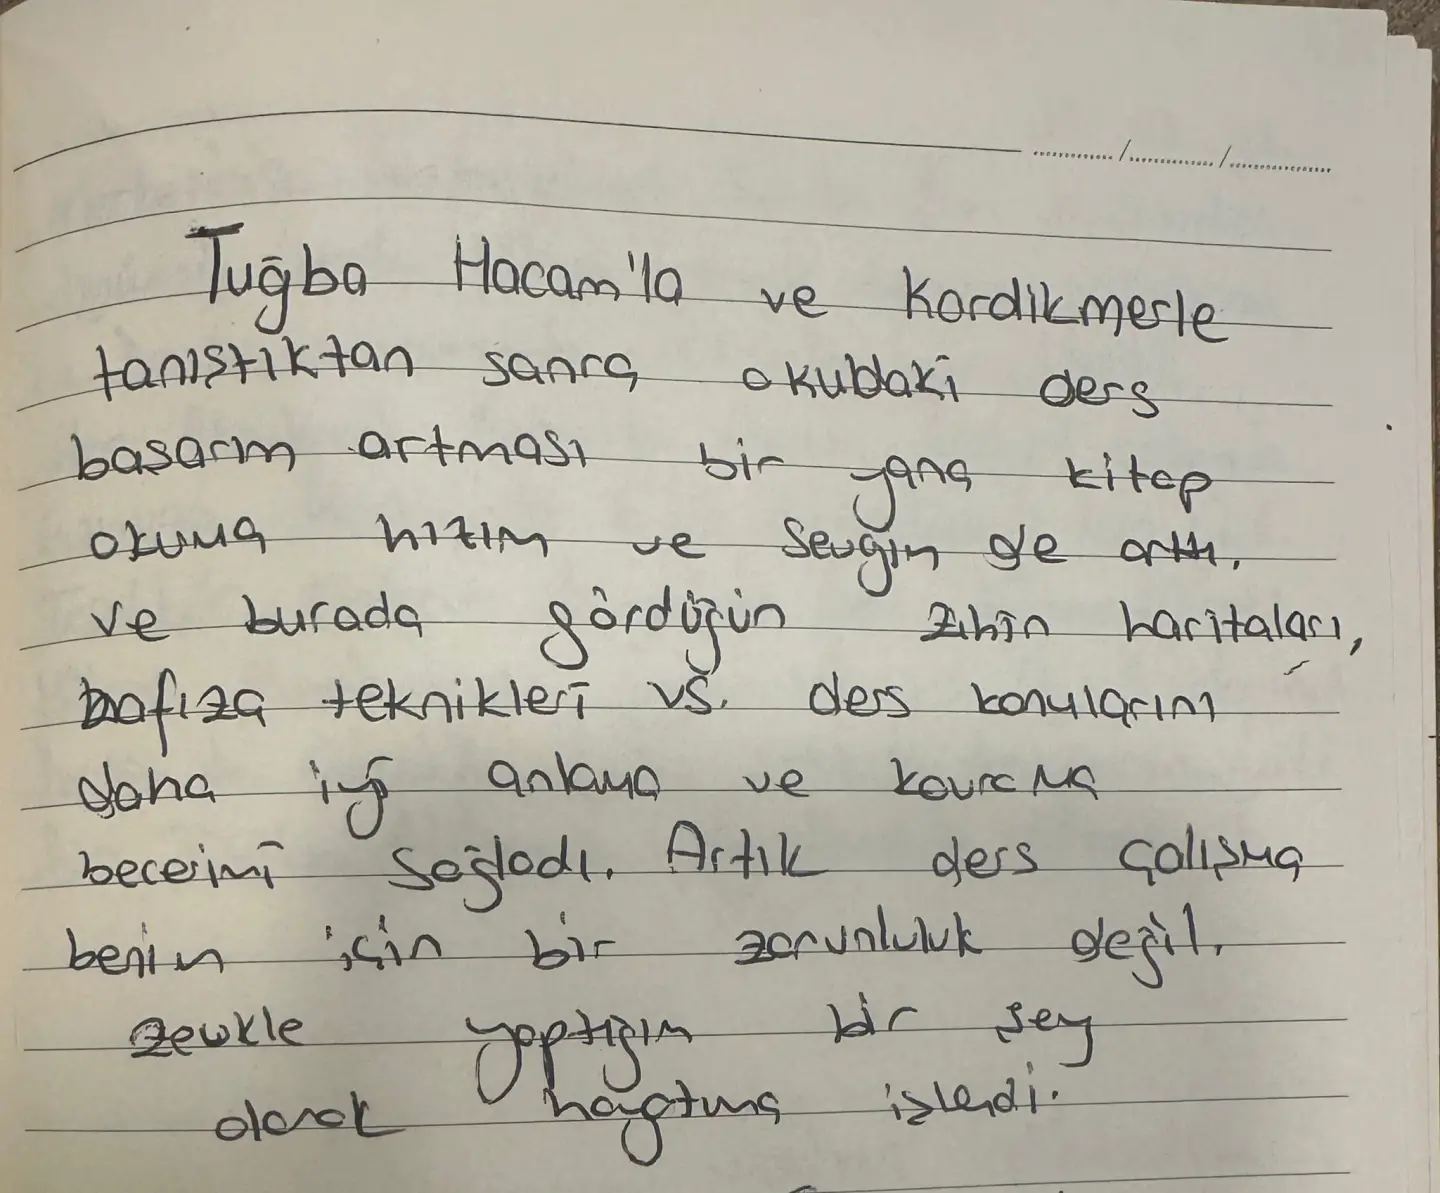 Tuğba Hocam'la ve Kordikmerle
tanıştıktan sonra okuldaki ders
basarım artması bir yana kitap
okuma hızım ve sevgim de arttı.
ve burada gördüğüm zihin haritaları,
hafıza teknikleri vs. ders konularını
daha iyi anlama ve kavrama
becerimi sağladı. Artık ders çalışma
benim için bir zorunluluk değil,
zevkle yaptığım bir şey
olarak hayatıma işlendi.